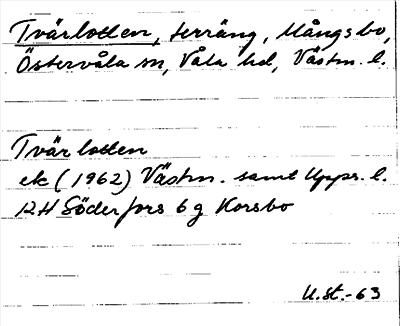 Tvärlotten, terräng, Mångsbo,
Östervåla sn, Våla hd, Västm. l.
Tvärlotten
ek (1962) Västm. samt Upps. l.
12H Söderfors 6g Korsbo
U.st.-63